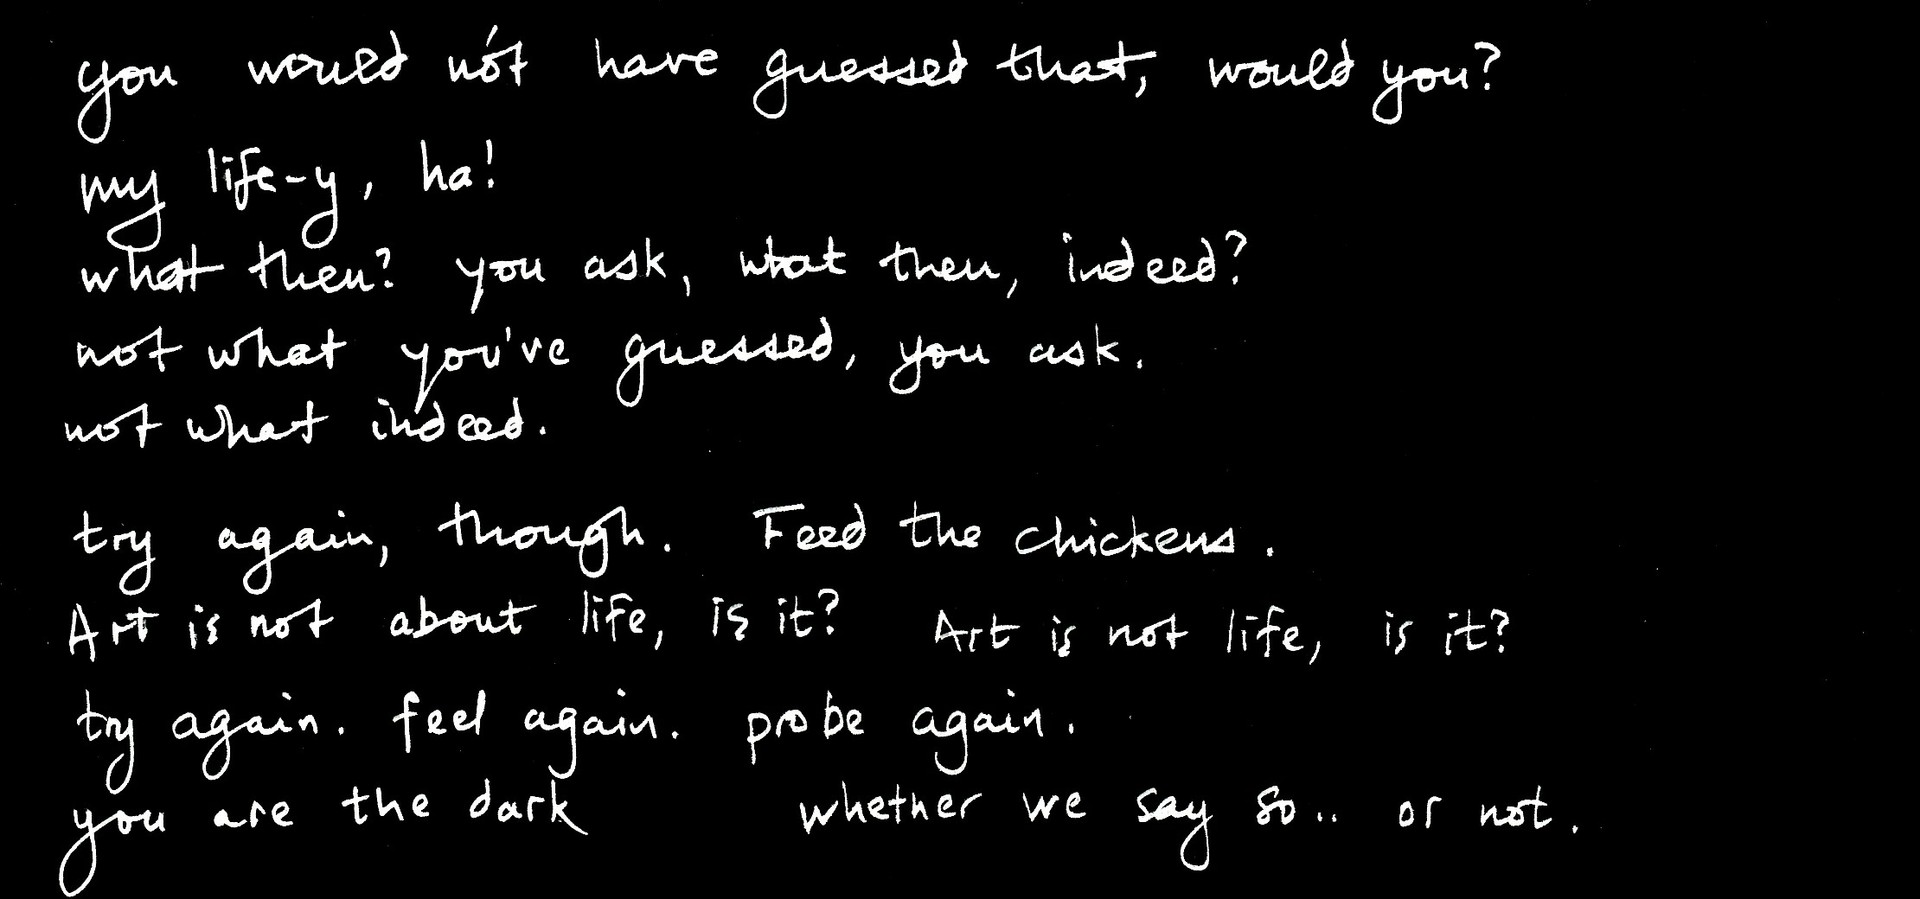 you would not have guessed that, would you?
my life-y, ha!
what then? you ask, what then, indeed?
not what you've guessed, you ask.
not what indeed.
try again, though. Feed the chickens.
Art is not about life, is it? Art is not life, is it?
try again. feel again. probe again.
you are the dark whether we say so.. or not.